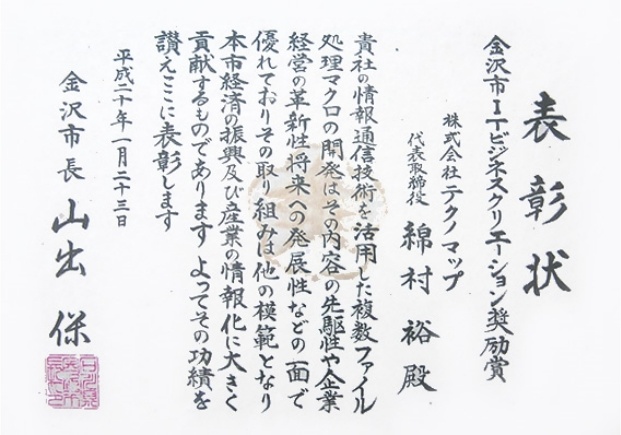 表彰状
金沢市ITビジネスクリエーション奨励賞
株式会社テクノマップ
代表取締役 綿村 裕 殿
貴社の情報通信技術を活用した複数ファイル
処理マクロの開発はその内容の先駆性や企業
経営の革新性将来への発展性などの面で
優れておりその取り組みは他の模範となり
本市経済の振興及び産業の情報化に大きく
貢献するものであります よってその功績を
讃えここに表彰します
平成二十年一月二十三日
金沢市長 山出 保